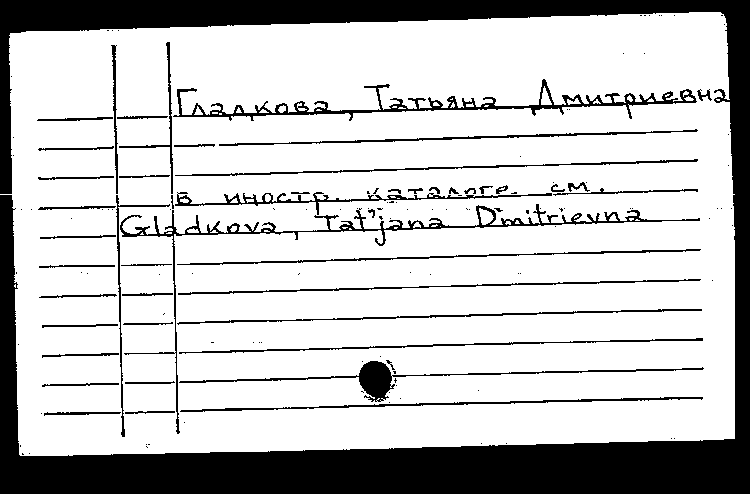 Гладкова, Татьяна Дмитриевна
в иностр. каталоге см.
Gladkova, Tat'jana Dmitrievna